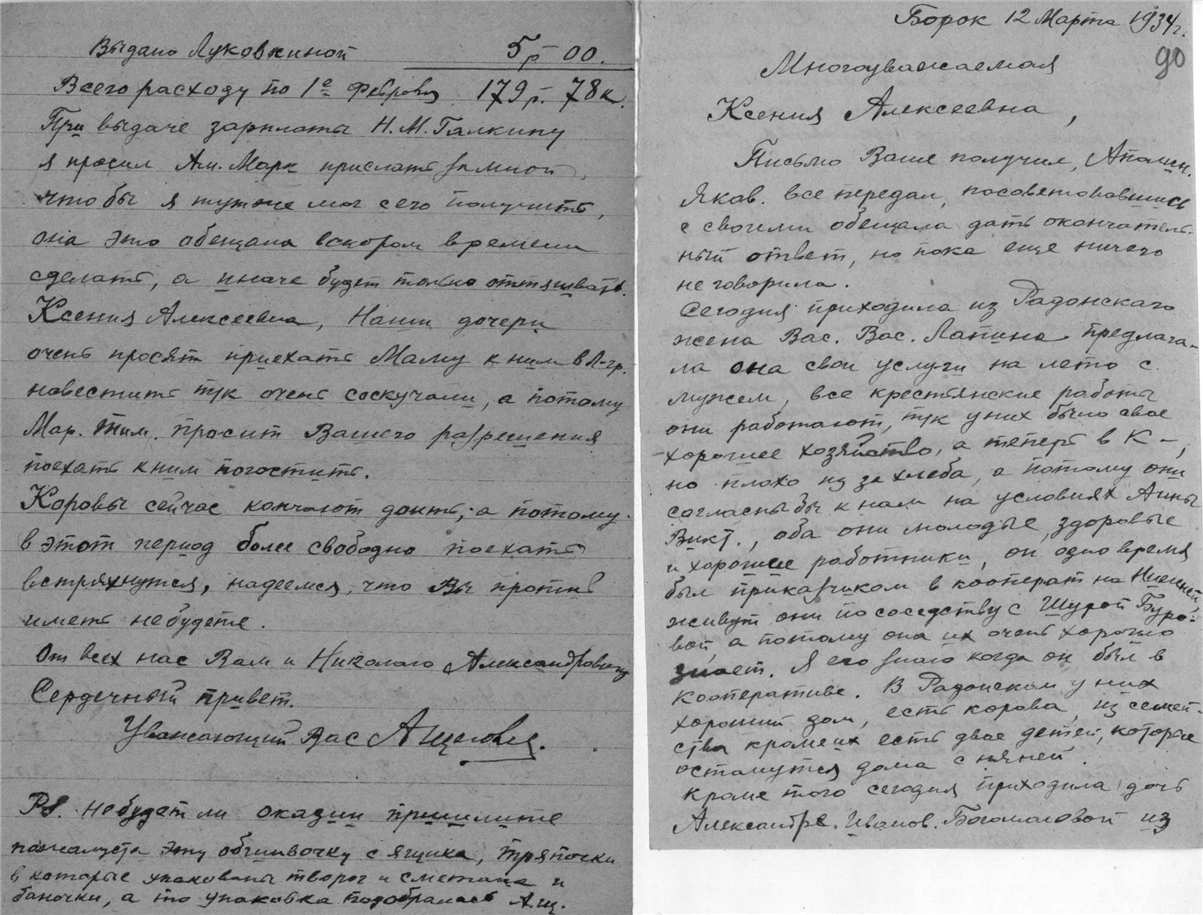 Выдано Луковкиной 5р 00.
Всего расходу по 1е Февраля 179р. 78к.
При выдаче зарплаты Н. М. Галкину
я просил Ан. Марк прислать за мной,
что бы я тут же мог с его получить,
она это обещала вскором времени
сделать, а иначе будет только оттягивать.
Ксения Алексеевна, Наши дочери
очень просят приехать Маму к ним в Л-гр.
навестить тук очень соскучали, а потому
Мар. Тим. просит Вашего разрешения
поехать к ним погостить.
Коровы сейчас кончают доить, а потому
в этот период более свободно поехать
встряхнутся, надеемся, что Вы против
иметь не будете.
От всех нас Вам и Николаю Александровичу
Сердечный привет.
Уважающий Вас
PS. Не будет ли оказии пришлите
пожалуста эту обшивочку с ящика, тряпочки
в которые упакованы творог и сметана и
баночки, а то упаковка подобралась А.Щ.
Борок 12 Марта 1934г.
90
Многоуважаемая
Ксения Алексеевна,
Письмо Ваше получил,
Яков. все передал, посоветовавшись
с своими обещала дать окончатель-
ный ответ, но пока еще ничего
не говорила.
Сегодня приходила из Радонскаго
жена Вас. Вас. Лапина предлага-
ла она свои услуги на лето с
мужем, все крестьянские работы
они работают, тук у них было свое
хорошее хозяйство, а теперь в К-,
но плохо из за хлеба, а потому они
согласны бы к нам на условиях Анны
Викт., оба они молодые, здоровые
и хорошие работники, он одно время
был приказчиком в кооперат на
живут они по соседству с Шурой Буро-
вой, а потому она их очень хорошо
знает. Я его знаю когда он был в
кооперативе. В Радонском у них
хороший дом, есть корова, из семей-
ства кроме их есть двое детей, которые
останутся дома с няней.
Кроме того сегодня приходила дочь
Александре. Иванов. Богомоловой из